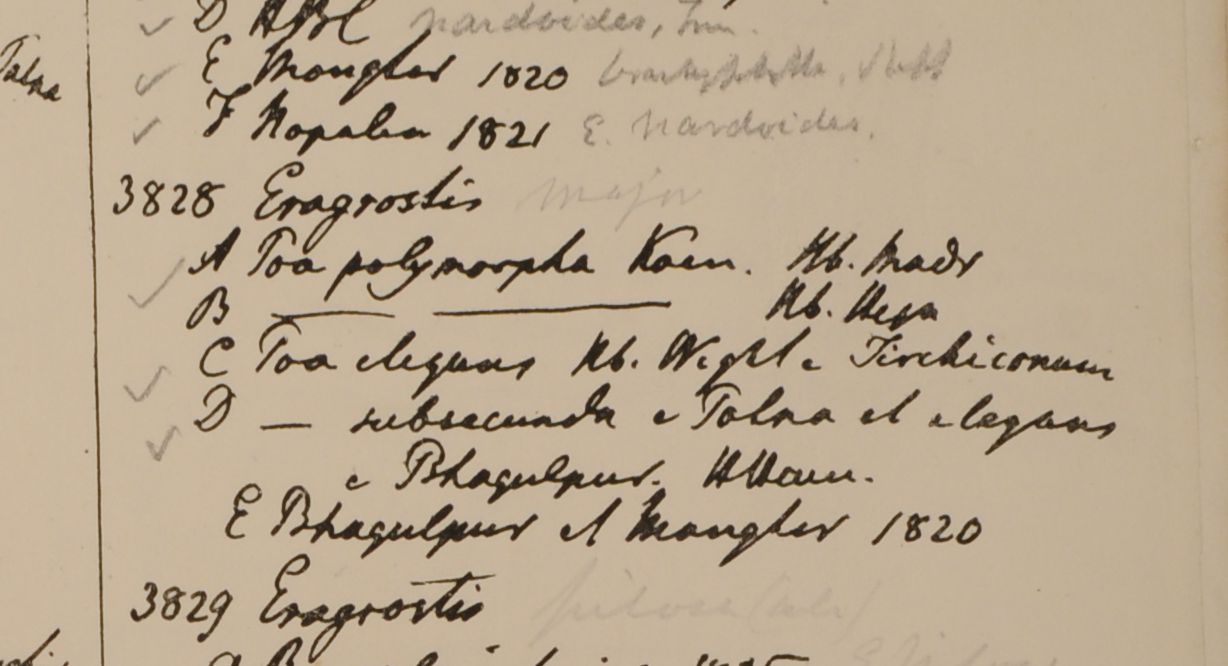 D HBC nardoides, Trin.
Patna
E Mongher 1820
F Nopalia 1821 E. nardoides.
3828 Eragrostis major
A Poa polymorpha Koen. Hb. Madr
B ——— ——— Hb. Heyn
C Poa elegans Hb. Wight e Tirchiconum
D — subsecunda e Patna et elegans
e Bhagulpur. HHam.
E Bhagulpur et Mongher 1820
3829 Eragrostis pilosa